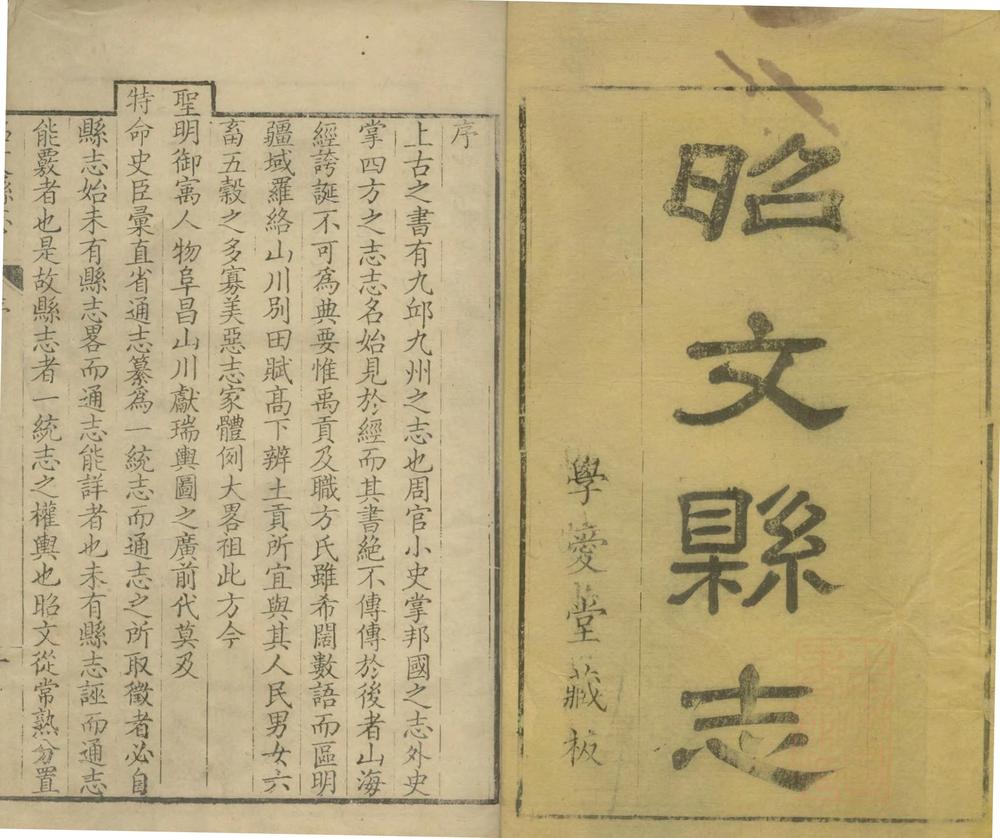 昭文縣志
學愛堂藏板
序
上古之書有九邱九州之志也周官小史掌邦國之志外史
掌四方之志志名始見於經而其書絶不傳傳於後者山海
經誇誕不可為典要惟禹貢及職方氏雖希闊數語而區明
疆域羅絡山川別田賦高下辨土貢所宜與其人民男女六
畜五穀之多寡美惡志家體例大畧祖此方今
聖明御㝢人物阜昌山川獻瑞輿圖之廣前代莫及
特命史臣彙直省通志纂為一統志而通志之所取徵者必自
縣志始未有縣志畧而通志能詳者也未有縣志誣而通志
能覈者也是故縣志者一統志之權輿也昭文從常熟分置